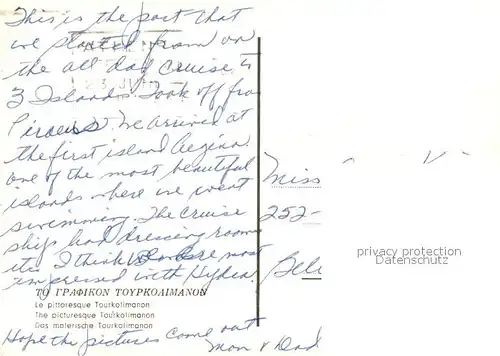 This is the port that
we started from on
the all day cruise to
3 Islands. Took off fro
Piraeus. We arrived at
the first island Aegina
one of the most beautiful
islands where we went
swimming. The cruise
ships had dressing rooms
etc. I think we are most
impressed with Hydra.
ΤΟ ΓΡΑΦΙΚΟΝ ΤΟΥΡΚΟΛΙΜΑΝΟΝ
Le pittoresque Tourkolimanon
The picturesque Tourkolimanon
Das malerische Tourkolimanon
Hope the pictures come out
Mom & Dad
Miss
252-
Bell
privacy protection
Datenschutz